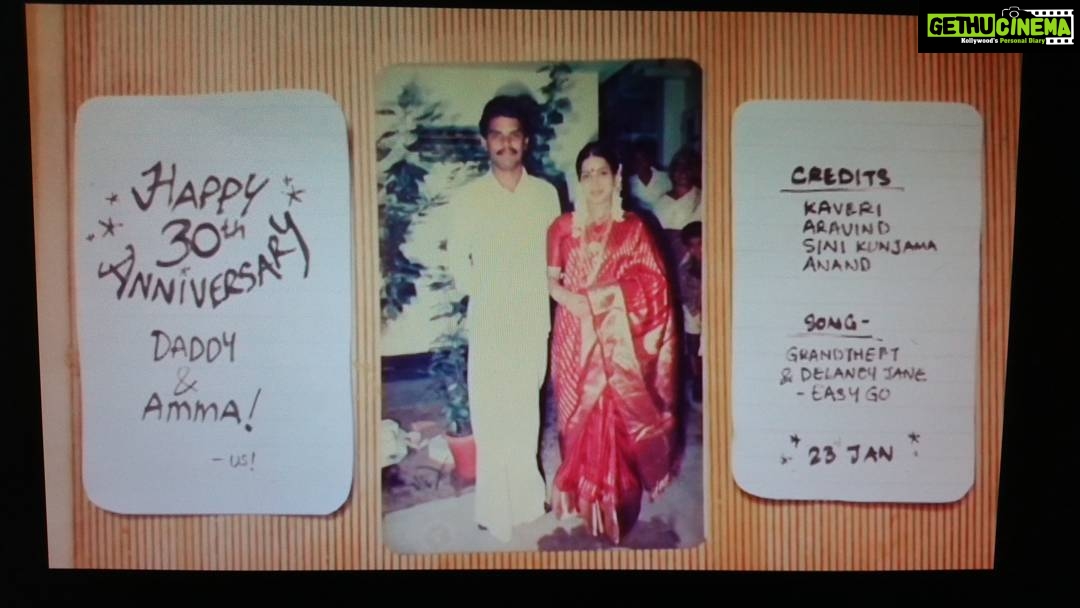 GETHU CINEMA
Kollywood's Personal Diary
HAPPY
30th
ANNIVERSARY
DADDY
&
AMMA!
- US!
CREDITS
KAVERI
ARAVIND
SINI KUNJAMA
ANAND
SONG-
GRANDTHEFT
& DELANEY JANE
- EASY GO
23 JAN